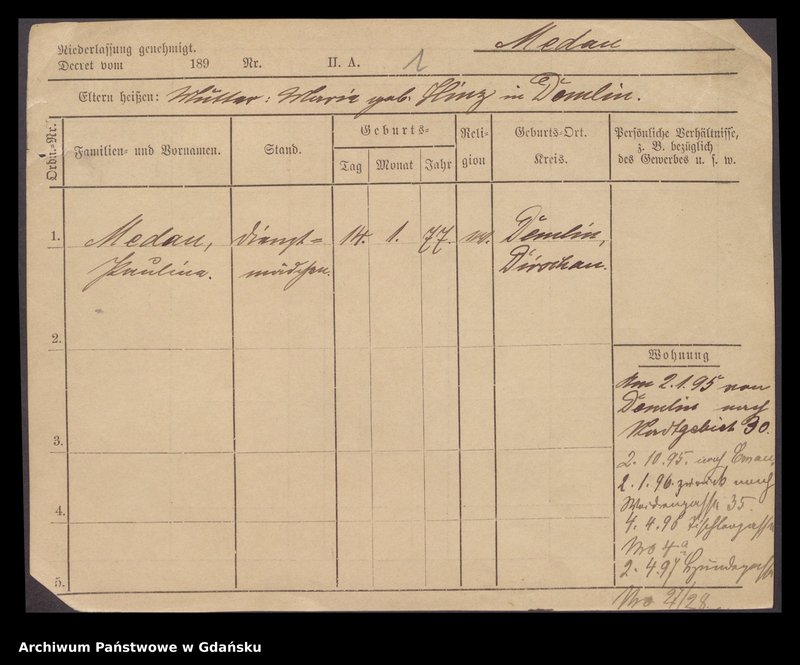 Medau
Niederlassung genehmigt.
Decret vom 189 Nr. II. A. 1
Eltern heißen: Mutter: Marie geb. Hinz in Demlin.
Ordn.-Nr.
Familien- und Vornamen.
Stand.
Geburts-
Tag Monat Jahr
Reli-
gion
Geburts-Ort.
Kreis.
Persönliche Verhältnisse,
z. B. bezüglich
des Gewerbes u. s. w.
1. Medau, Dienst= 14. 1. 77. Demlin,
Paulina. mädchen. Dirschau.
2.
Wohnung
Am 2.1.95 von
Demlin nach
Stadtgebiet 30.
3.
2. 10. 95. nach
2. 1. 96. zurück nach
Weidengasse 35.
4.
4. 4. 96 Tischlergasse
No 4a
2. 4. 97 Hundegasse
5.
No 27/28
Archiwum Państwowe w Gdańsku